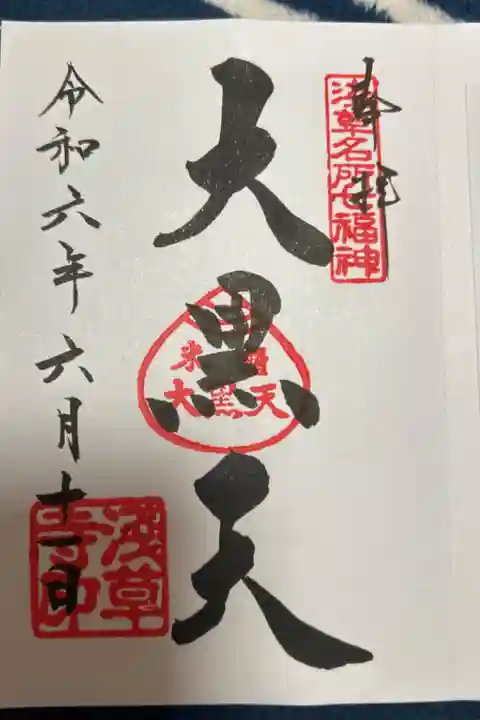 奉拝
浅草名所七福神
大黒天
米櫃
大黒天
令和六年六月十一日
浅草
寺印